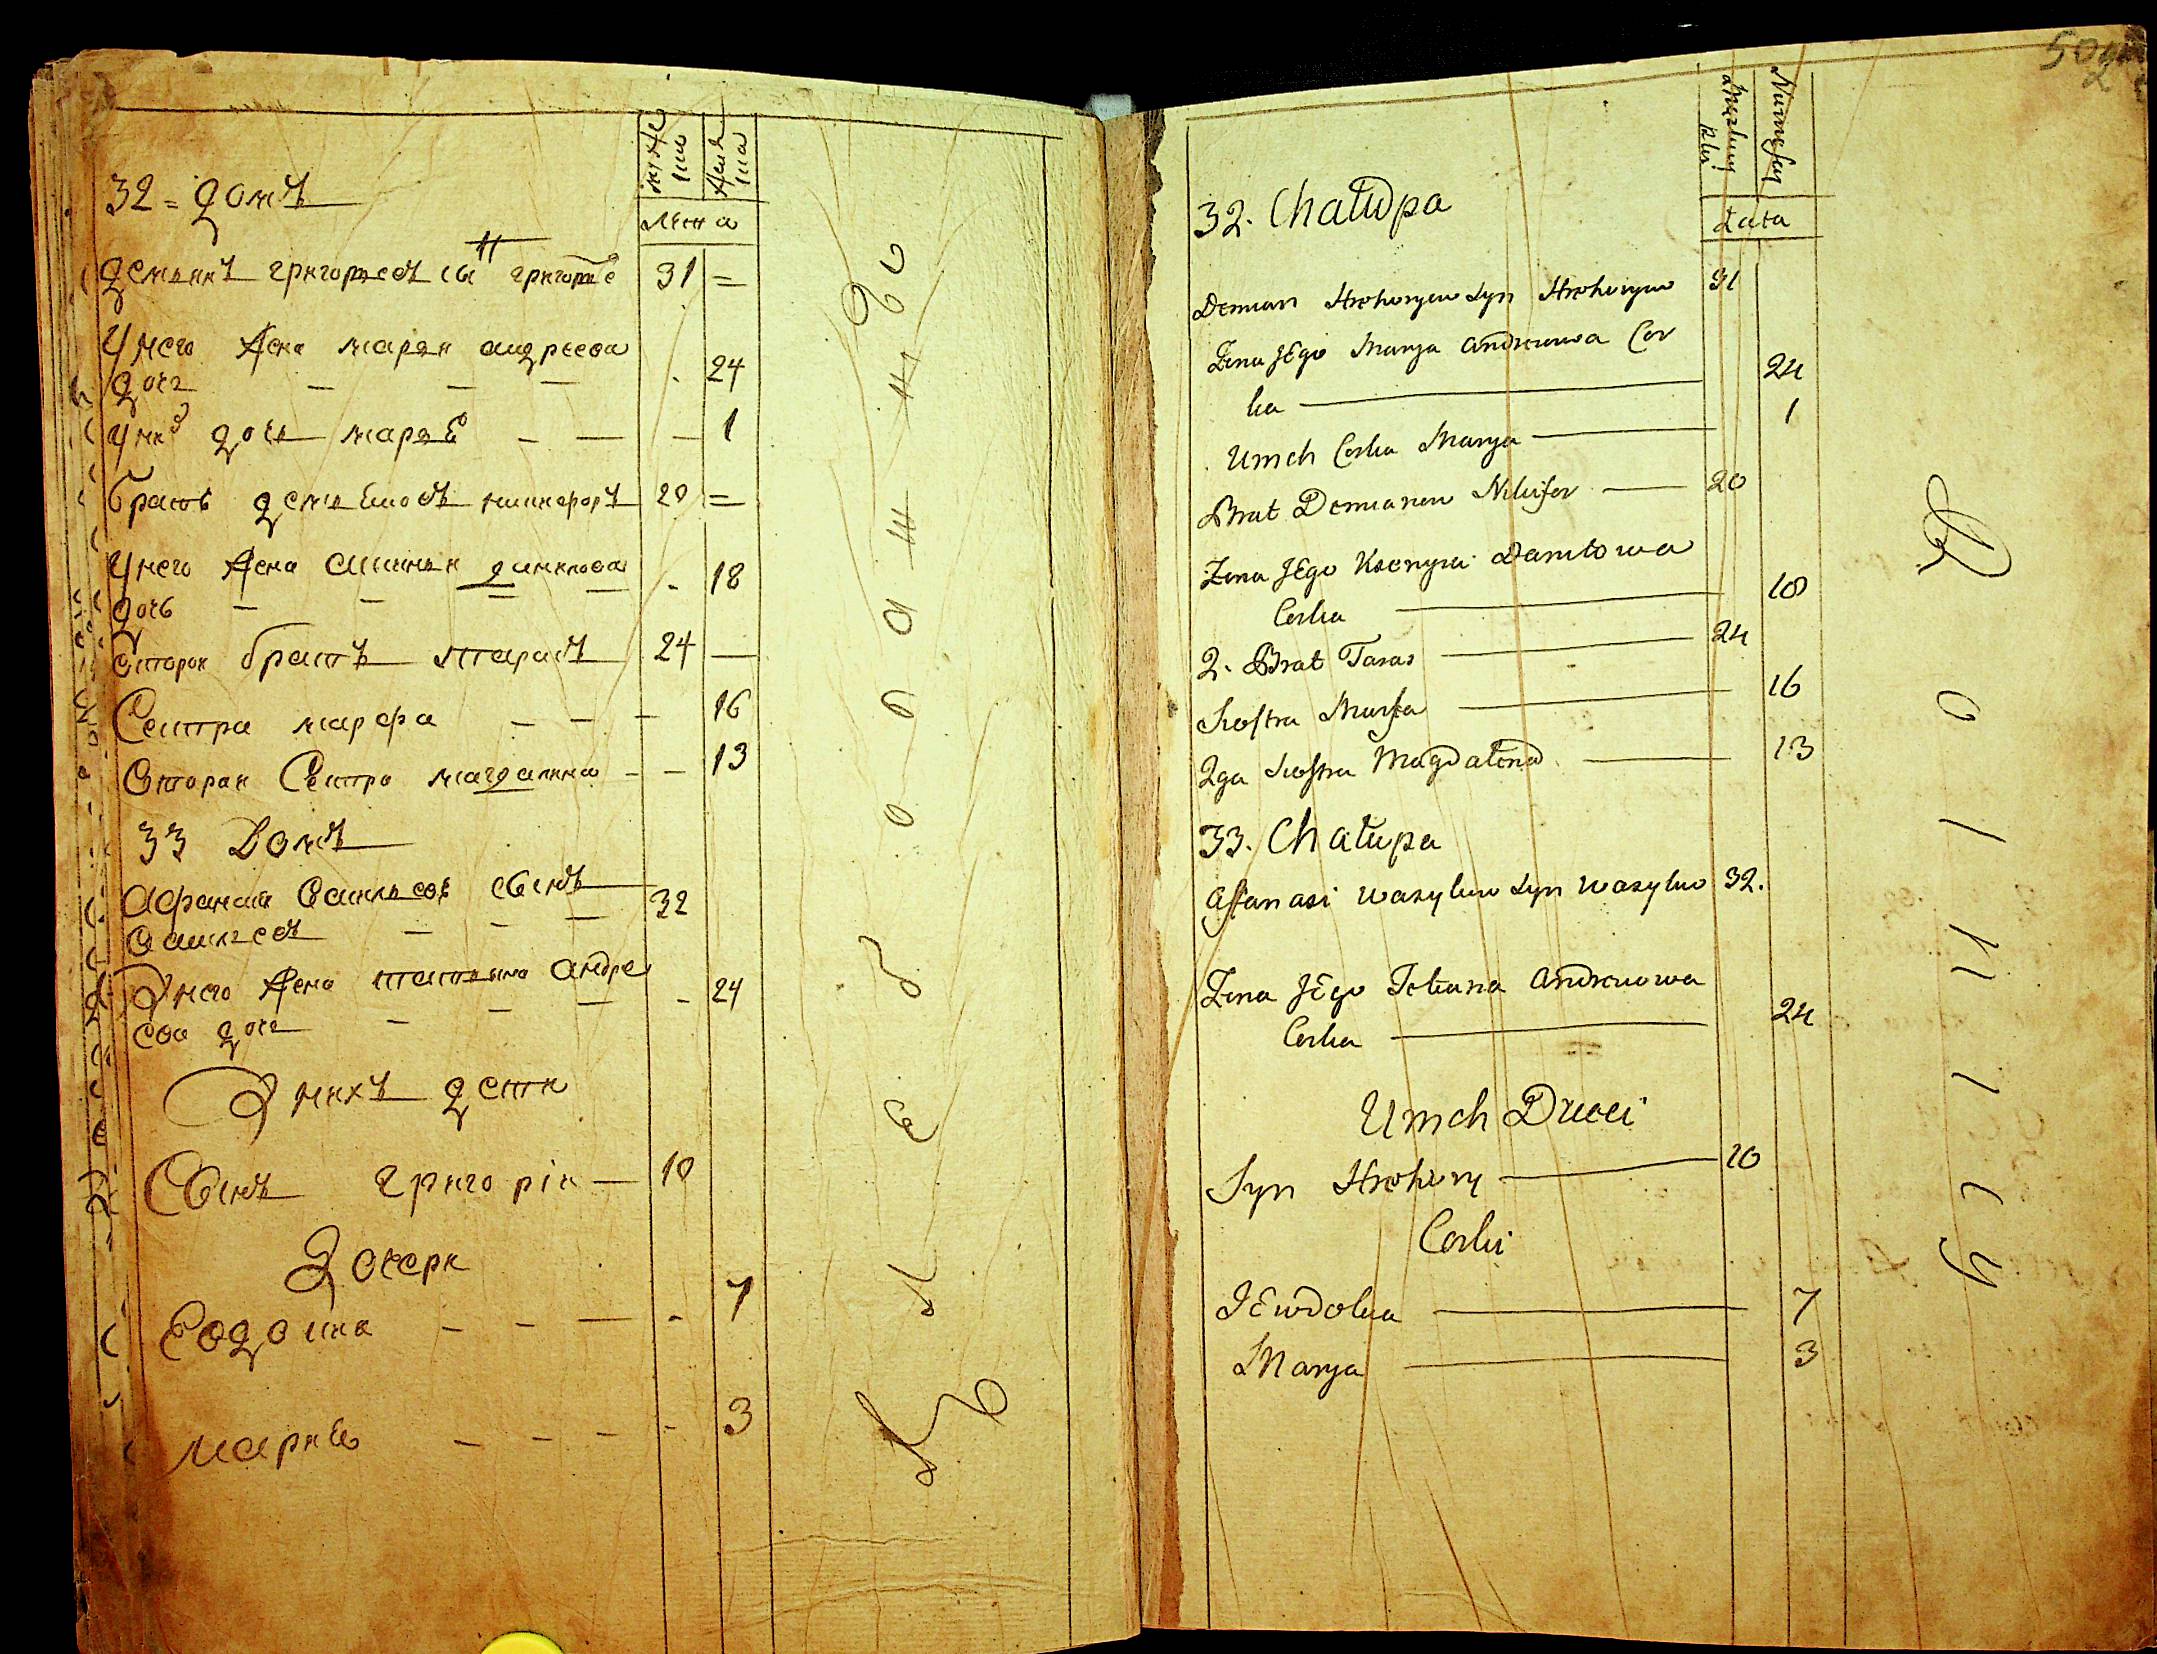 мужес
ка
женс
ка
лета
32 = домъ
Демянъ григориевъ сынъ григорие 31 =
У него жена мария андреева
дочь — — — . 24
У них дочь мария — — — 1
братъ демяновъ никифоръ 20 =
У него жена данилова
дочь — — — - 18
Второи братъ тарасъ 24 —
Сестра марфа — — — 16
Вторая Сестра магдалина - — 13
33 Домъ
Афанаси Василиевъ сынъ
Василевъ — — — 32
У него жена татияна андре
ева дочь — — — - 24
У нихъ дети
Сынъ григорiи — 10
Дочери
Евдокия — — — - 7
Мария — — — - 3
50
2
Męzkiey
Płci
Lata
32. Chałupa
Demian Hrehoryew Syn Hrehoryew 31
Zona JEgo Marya Andreiewa Cor
ka — 24
U nich Corka Marya — 1
Brat Demianow Nikifor — 20
Zona JEgo Ksenyia Daniłowa
Corka — 18
2. Brat Taras — 24
Siostra Marfa — 16
2ga Siostra Magdalena — 13
33. Chałupa
Afanasi Wasylew Syn Wasylew 32.
Zona JEgo Tetiana Andreiowa
Corka — 24
U nich Dzieci
Syn Hrehory — 10
Corki
JEwdokia — 7
Marya — 3